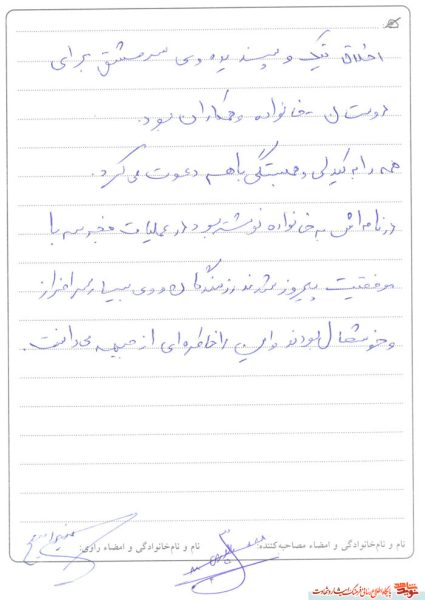 اخلاق نیک و پسندیده وی سرمشق برای
دوستان خانواده و همکاران بود.
همه را به یکدلی و همبستگی با هم دعوت می کرد.
در نامه اش به خانواده نوشته بود در عملیات فجر سه با
موفقیت پیروز شدند رزمندگان و وی بسیار سرافراز
و خوشحال بودند و این را خاطره ای از جبهه می دانست.
نام و نام‌خانوادگی و امضاء مصاحبه‌کننده:
نام و نام‌خانوادگی و امضاء راوی: